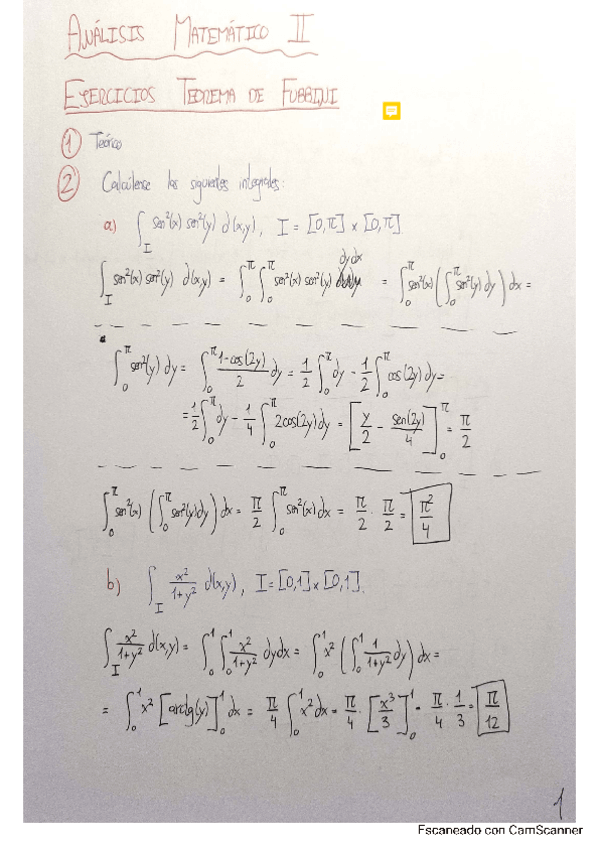 ANÁLISIS MATEMÁTICO II
EJERCICIOS TEOREMA DE FUBBINI
① Teórico
② Calcúlense las siguientes integrales:
a) ∫_I sen²(x) sen²(y) d(x,y), I = [0,π] × [0,π]
∫_I sen²(x) sen²(y) d(x,y) = ∫₀^π ∫₀^π sen²(x) sen²(y) dydx = ∫₀^π sen²(x) (∫₀^π sen²(y) dy) dx =
∫₀^π sen²(y) dy = ∫₀^π (1-cos(2y))/2 dy = 1/2 ∫₀^π dy - 1/2 ∫₀^π cos(2y) dy =
= 1/2 ∫₀^π dy - 1/4 ∫₀^π 2cos(2y) dy = [y/2 - sen(2y)/4]₀^π = π/2
∫₀^π sen²(x) (∫₀^π sen²(y) dy) dx = π/2 ∫₀^π sen²(x) dx = π/2 · π/2 = π²/4
b) ∫_I x²/(1+y²) d(x,y), I = [0,1] × [0,1].
∫_I x²/(1+y²) d(x,y) = ∫₀¹ ∫₀¹ x²/(1+y²) dydx = ∫₀¹ x² (∫₀¹ 1/(1+y²) dy) dx =
= ∫₀¹ x² [arctg(y)]₀¹ dx = π/4 ∫₀¹ x² dx = π/4 · [x³/3]₀¹ = π/4 · 1/3 = π/12
1
Escaneado con CamScanner